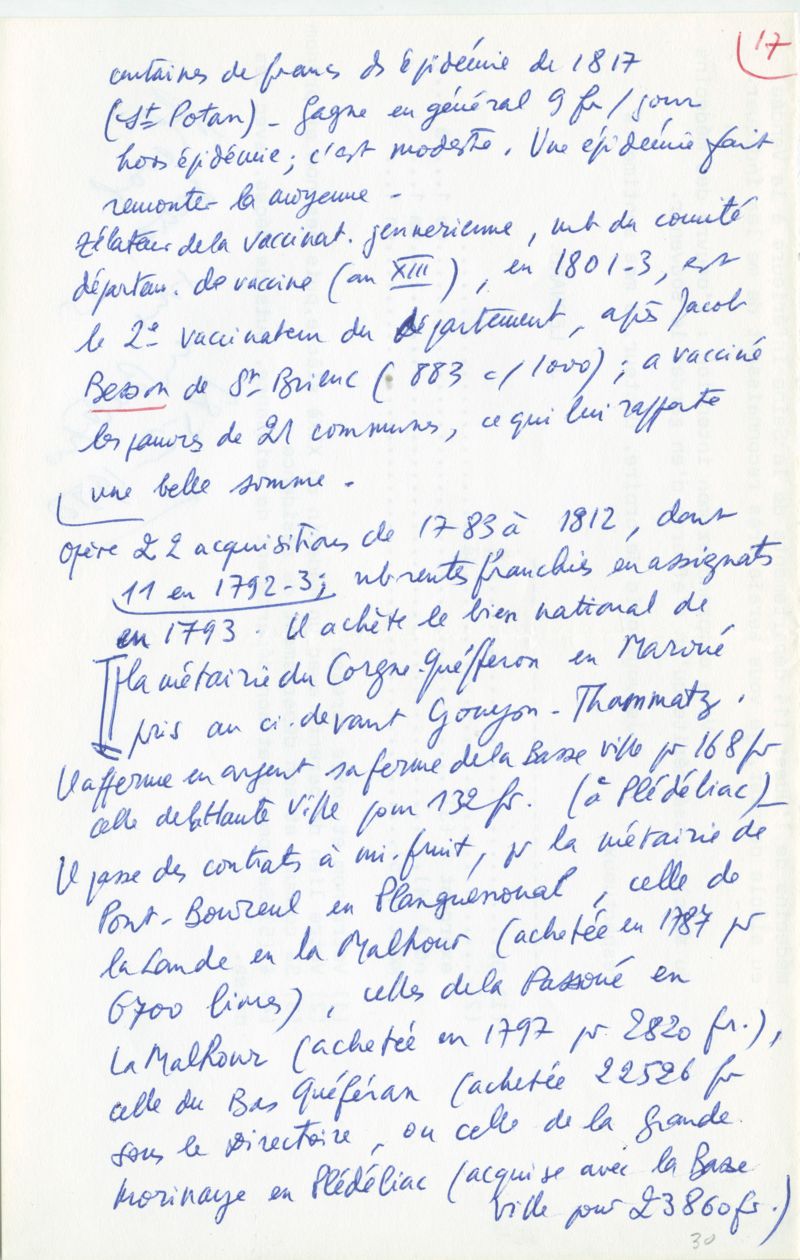 17
centaines de francs ds épidémie de 1817
(St Potan) - Gagne en général 9 fr/jour
hors épidémie ; c'est modeste. Une épidémie fait
remonter la moyenne -
zélateur de la vaccinat. jennerienne, mb du comité
départem. de vaccine (an XIII), en 1801-3, est
le 2e vaccinateur du département, après Jacob
Besson de St Brieuc (883 c/ 1000) ; a vacciné
les pauvres de 21 communes, ce qui lui rapporte
une belle somme -
opère 22 acquisitions de 1783 à 1812, dont
11 en 1792-3 ; nb rentes franchies en assignats
en 1793. Il achète le bien national de
la métairie du Corgne-Quéfferon en Maroué
pris au ci-devant Gouyon-Thaumatz.
Il afferme en argent sa ferme de la Basse Ville pr 168 fr
celle de la Haute Ville pour 132 fr. (à Plédéliac) -
Il passe des contrats à mi-fruit, pr la métairie de
Pont-Boureul en Planguenoual, celle de
la Lande en la Malhour (achetée en 1787 pr
6700 livres), celles de la Passoué en
La Malhour (achetée en 1797 pr 2820 fr.),
celle du Bas Quéféran (achetée 22526 fr
sous le Directoire, ou celle de la Grande
Morinaye en Plédéliac (acquise avec la Basse
Ville pour 23860 fr.)
30